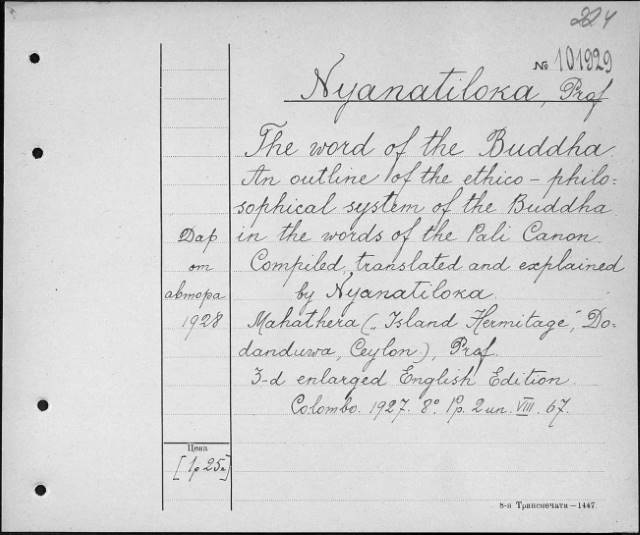 224
№ 101929
Nyanatiloka, Prof
The word of the Buddha.
An outline of the ethico-philo=
sophical system of the Buddha
in the words of the Pali Canon.
Compiled, translated and explained
by Nyanatiloka.
Mahathera („Island Hermitage", Do-
danduwa, Ceylon), Prof.
3-d enlarged English Edition.
Colombo. 1927. 8° 1p. 2 un. VIII. 67.
Дар
от
автора
1928
Цена
[1р 25к]
8-я Транспечати—1447